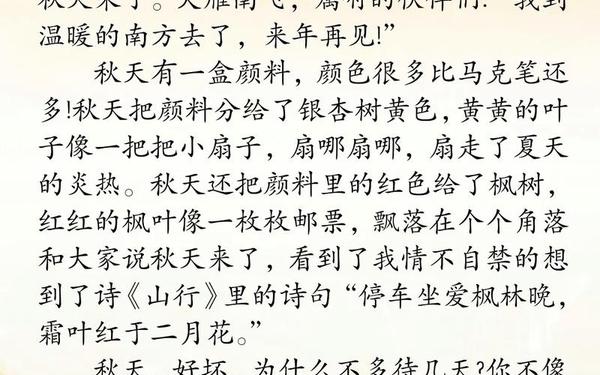 秋天来了。大雁南飞，的伙伴们:“我到
温暖的南方去了，来年再见!”
秋天有一盒颜料，颜色很多比马克笔还
多!秋天把颜料分给了银杏树黄色，黄黄的叶
子像一把把小扇子，扇哪扇哪，扇走了夏天
的炎热。秋天还把颜料里的红色给了枫树，
红红的枫叶像一枚枚邮票，飘落在个个角落
和大家说秋天来了，看到了我情不自禁的想
到了诗《山行》里的诗句“停车坐爱枫林晚，
霜叶红于二月花。”
秋天，好坏，为什么不多待几天?你不像